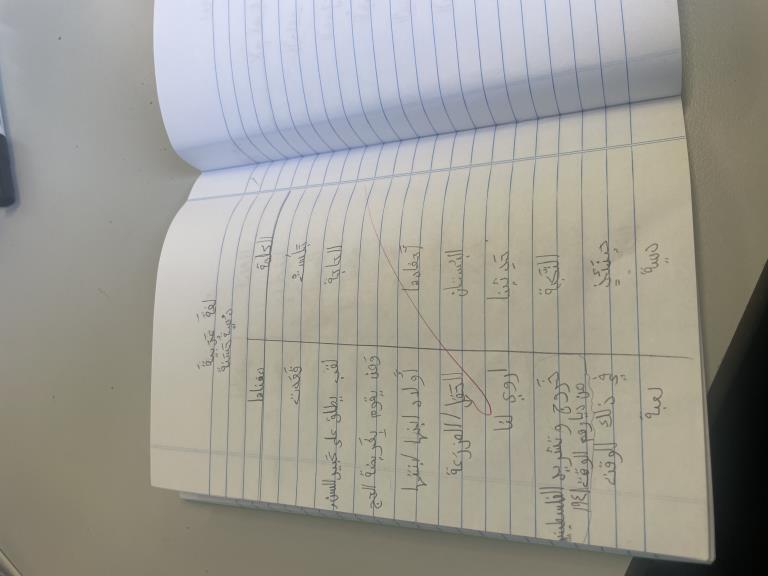 لغة عربية
دمية حسنة
الكلمة معناها
جَلَسَت قَعَدَت
الحاجة لقب يطلق على كبير السن
ومن يقوم بفريضة الحج
أحفادها أولاد ابنها / ابنتها
البستان الحقل / المزرعة
حَدِّثينا اروي لنا
النكبة خروج وتشريد الفلسطينين
من ديارهم الوقت ١٩٤٨
حينَئِذٍ في ذلك الوقت
دمية لعبة